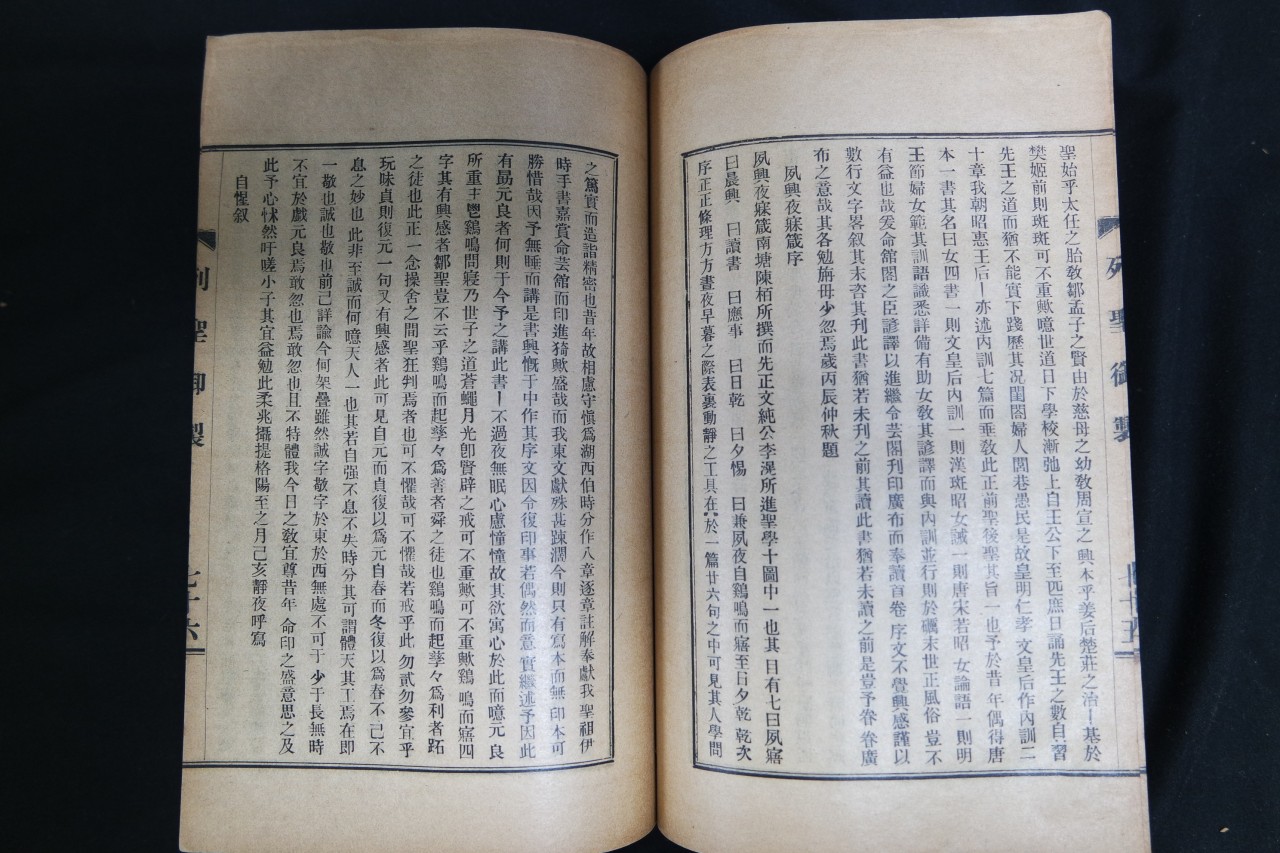 聖始乎太任之胎敎鄒孟子之賢由於慈母之幼敎周宣之 興本乎姜后楚莊之治ー基於
樊姬前則斑斑可不重歟噫世道日下學校漸弛上自王公下至匹庶日誦先王之敎自習
先王之道而猶不能實下踐歷其况閨閤婦人閭巷愚民是故皇明仁孝 文皇后作內訓二
十章我朝昭惠王后ー亦述內訓七篇而垂敎此正前聖後聖其旨一也予於昔年偶得唐
本一書其名曰女四書一則文皇后內訓一則漢斑昭女誡一則唐宋若昭女論語一則明
王節婦女範其訓語諴悉詳備有助女敎其諺譯而與內訓並行則於礪末世正風俗豈不
有益也哉爰命館閣之臣諺譯以進繼令芸閣刊印廣布而奉讀首卷 序文不覺興感謹以
數行文字畧叙其末咨其刊此書猶若未刊之前其讀此書猶若未讀之前是豈予眷眷廣
布之意哉其各勉旃毋少忽焉歲丙辰仲秋題
夙興夜寐箴序
夙興夜寐箴南塘陳栢所撰而先正文純公李滉所進聖學十圖中一也其 目有七曰夙寤
曰晨興 曰讀書 曰應事 曰日乾 曰夕惕 曰兼夙夜自鷄鳴而寤至日夕乾乾次
序正正條理方方晝夜早暮之際表裏動靜之工具在於一篇廿六句之中可見其人學問
之篤實而造詣精密也昔年故相盧守愼爲湖西伯時分作八章逐章註解奉獻我 聖祖伊
時手書嘉賞命芸舘而印進猗歟盛哉而我東文獻殊甚踈濶今則只有寫本而無印本可
勝惜哉因予無睡而講是書興慨于中作其序文因令復印事若偶然而意實繼述予因此
有勗元良者何則于今予之講此書ー不過夜無眠心慮憧憧故其欲寓心於此而噫元良
所重主鬯鷄鳴問寢乃世子之道蒼蠅月光卽賢辟之戒可不重歟可不重歟鷄 鳴而寤四
字其有興感者鄒聖豈不云乎鷄鳴而起孳々爲善者舜之徒也鷄鳴而起孳々爲利者跖
之徒也此正一念操舍之間聖狂判焉者也可不懼哉可不懼哉若戒乎此 勿貳勿參宜乎
玩味貞則復元一句又有興感者此可見自元而貞復以爲元自春而冬復以爲春不已不
息之妙也此非至誠而何噫天人一也其若自强不息不失時分其可謂體天其工焉在卽
一敬也誠也敬也前已詳論今何架疊雖然誠字敬字於東於西無處不可于少于長無時
不宜於戲元良焉敢忽也焉敢忽也且不特體我今日之敎宜尊昔年 命印之盛意思之及
此予心怵然吁嗟小子其宜益勉此柔兆攝提格陽至之月己亥靜夜呼寫
自惺叙
列聖御製
列聖御製
七十六